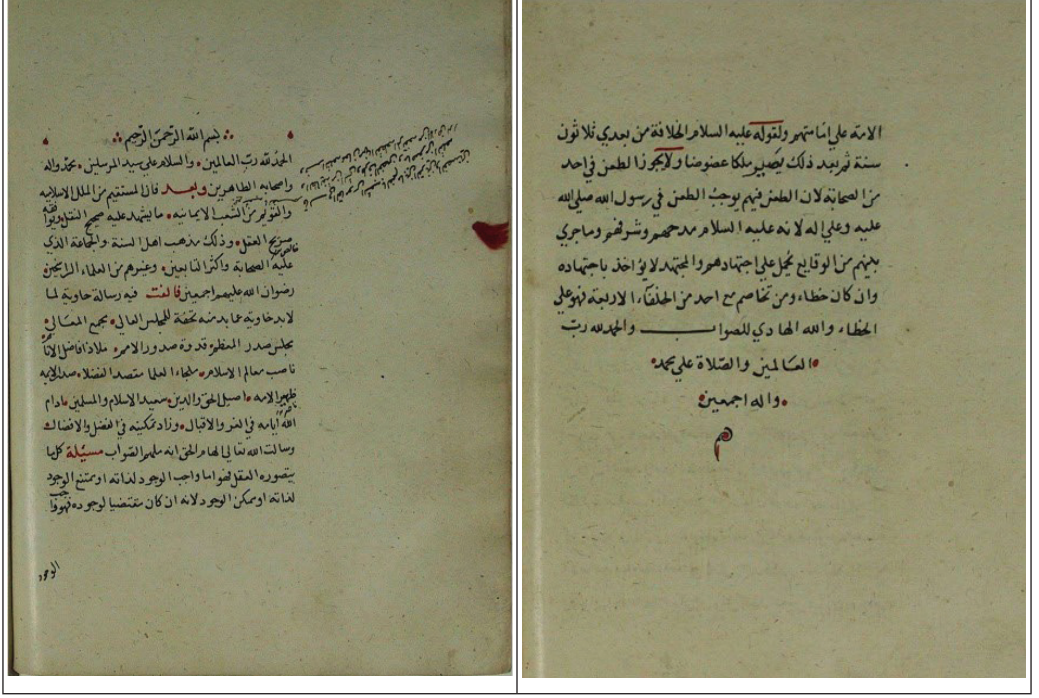 بسم الله الرحمن الرحيم
الحمد لله رب العالمين والسلام علي سيد المرسلين محمد واله
واصحابه الطاهرين وبعد فان المستقيم من الملل الاسلاميه
والقويم من الشعب الايمانيه ما يشهد عليه صحيح النقل
صريح العقل وذلك مذهب اهل السنة والجماعة الذي
عليه الصحابة واكثر التابعين وغيرهم من العلماء الراسخين
رضوان الله عليهم اجمعين فالفت فيه رسالة حاوية لما
لابد خاوية عما بد منه تحفة للمجلس العالي مجمع المعالي
مجلس صدر المعظم قدوة صدور الامم ملاذ افاضل الانام
ناصب معالم الاسلام ملجاء العلما مقصد الفضلا
ظهير الامه اصيل الحق والدين سعيد الاسلام والمسلمين مادام
الله ايامه في العز والاقبال وزاد تمكينه في الفضل والافضال
وسالت الله تعالي الهام الحق انه ملهم الصواب مسئلة كل ما
يتصوره العقل فهو اما واجب الوجود لذاته او ممتنع الوجود
لذاته او ممكن الوجود لانه ان كان مقتضيا لوجوده فهو واجب
الوجود
الامه علي امامتهم ولقوله عليه السلام الخلافة من بعدي ثلاثون
سنة ثم بعد ذلك يصير ملكا عضوضا ولا يجوز الطعن في احد
من الصحابة لان الطعن فيهم يوجب الطعن في رسول الله صلي الله
عليه وعلي اله لانه عليه السلام مدحهم وشرفهم وما جري
بينهم من الوقايع يحمل علي اجتهادهم والمجتهد لا يؤاخذ باجتهاده
وان كان خطاء ومن تخاصم مع احد من الخلفاء الاربعة فهو علي
الخطاء والله الهادي للصواب والحمد لله رب
العالمين والصلاة علي محمد
واله اجمعين
م